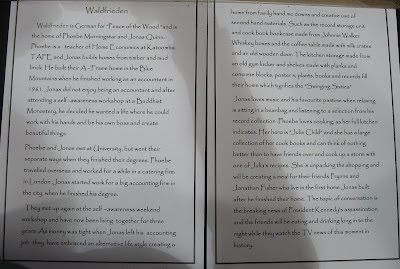 Waldfrieden
Waldfrieden is German for "Peace of the Wood" and is
the home of Phoebe Morningstar and Jonas Quinn.
Phoebe is a teacher of Home Economics at Katoomba
TAFE and Jonas builds homes from timber and mud
brick. He built their A-Frame home in the Blue
Mountains when he finished working as an accountant in
1961. Jonas did not enjoy being an accountant and after
attending a self-awareness workshop at a Buddhist
Monastery, he decided he wanted a life where he could
work with his hands and be his own boss and create
beautiful things.
Phoebe and Jonas met at University, but went their
separate ways when they finished their degrees. Phoebe
travelled overseas and worked for a while in a catering firm
in London. Jonas started work for a big accounting firm in
the city, when he finished his degree.
They met up again at the self-awareness weekend
workshop and have now been living together for three
years. As money was tight when Jonas left his accounting
job they have embraced an alternative life style creating a
home from family hand me downs and creative use of
second hand materials. Such as the record storage unit
and cook book bookcase made from Johnnie Walker
Whiskey boxes and the coffee table made with milk crates
and an old wooden door. The kitchen storage made from
an old gym locker and shelves made with planks and
concrete blocks, posters, plants, books and records fill
their home which signifies the "Swinging Sixties"
Jonas loves music and his favourite pastime when relaxing
is sitting in a beanbag and listening to a selection from his
record collection. Phoebe loves cooking, as her full kitchen
indicates. Her hero is "Julia Child" and she has a large
collection of her cook books and can think of nothing
better than to have friends over and cook up a storm with
one of Julia's recipes. She is unpacking the shopping and
will be creating a meal for their friends and
Jonathan Fisher who live in the first home Jonas built
after he finished their home. The topic of conversation is
the breaking news of President Kennedy's assassination
and the friends will be eating and drinking long in to the
night while they watch the TV news of this moment in
history.